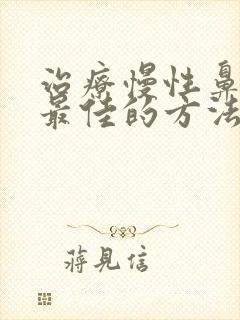 治療慢性鼻
最佳的方法
蔣見信